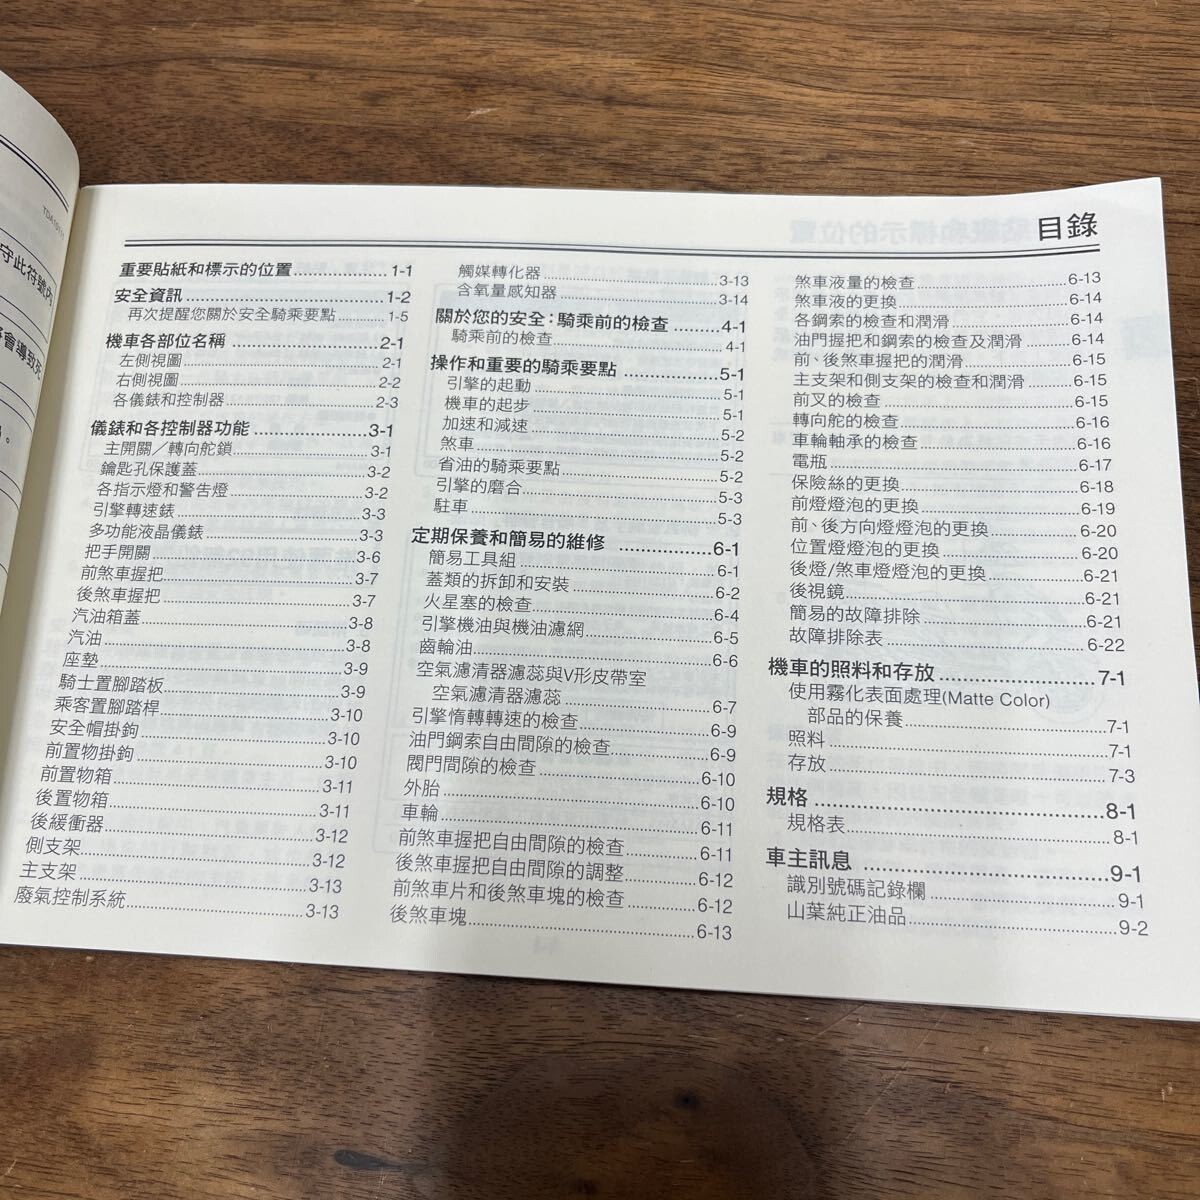 TDA1011
守此符號內
會導致死
。
目錄
重要貼紙和標示的位置 1-1
安全資訊 1-2
再次提醒您關於安全騎乘要點 1-5
機車各部位名稱 2-1
左側視圖 2-1
右側視圖 2-2
各儀錶和控制器 2-3
儀錶和各控制器功能 3-1
主開關／轉向舵鎖 3-1
鑰匙孔保護蓋 3-2
各指示燈和警告燈 3-2
引擎轉速錶 3-3
多功能液晶儀錶 3-3
把手開關 3-6
前煞車握把 3-7
後煞車握把 3-7
汽油箱蓋 3-8
汽油 3-8
座墊 3-9
騎士置腳踏板 3-9
乘客置腳踏桿 3-10
安全帽掛鉤 3-10
前置物掛鉤 3-10
前置物箱 3-11
後置物箱 3-11
後緩衝器 3-12
側支架 3-12
主支架 3-13
廢氣控制系統 3-13
觸媒轉化器 3-13
含氧量感知器 3-14
關於您的安全：騎乘前的檢查 4-1
騎乘前的檢查 4-1
操作和重要的騎乘要點 5-1
引擎的起動 5-1
機車的起步 5-1
加速和減速 5-2
煞車 5-2
省油的騎乘要點 5-2
引擎的磨合 5-3
駐車 5-3
定期保養和簡易的維修 6-1
簡易工具組 6-1
蓋類的拆卸和安裝 6-2
火星塞的檢查 6-4
引擎機油與機油濾網 6-5
齒輪油 6-6
空氣濾清器濾蕊與V形皮帶室
空氣濾清器濾蕊 6-7
引擎惰轉轉速的檢查 6-9
油門鋼索自由間隙的檢查 6-9
閥門間隙的檢查 6-10
外胎 6-10
車輪 6-11
前煞車握把自由間隙的檢查 6-11
後煞車握把自由間隙的調整 6-12
前煞車片和後煞車塊的檢查 6-12
後煞車塊 6-13
煞車液量的檢查 6-13
煞車液的更換 6-14
各鋼索的檢查和潤滑 6-14
油門握把和鋼索的檢查及潤滑 6-14
前、後煞車握把的潤滑 6-15
主支架和側支架的檢查和潤滑 6-15
前叉的檢查 6-15
轉向舵的檢查 6-16
車輪軸承的檢查 6-16
電瓶 6-17
保險絲的更換 6-18
前燈燈泡的更換 6-19
前、後方向燈燈泡的更換 6-20
位置燈燈泡的更換 6-20
後燈/煞車燈燈泡的更換 6-21
後視鏡 6-21
簡易的故障排除 6-21
故障排除表 6-22
機車的照料和存放 7-1
使用霧化表面處理(Matte Color)
部品的保養 7-1
照料 7-1
存放 7-3
規格 8-1
規格表 8-1
車主訊息 9-1
識別號碼記錄欄 9-1
山葉純正油品 9-2